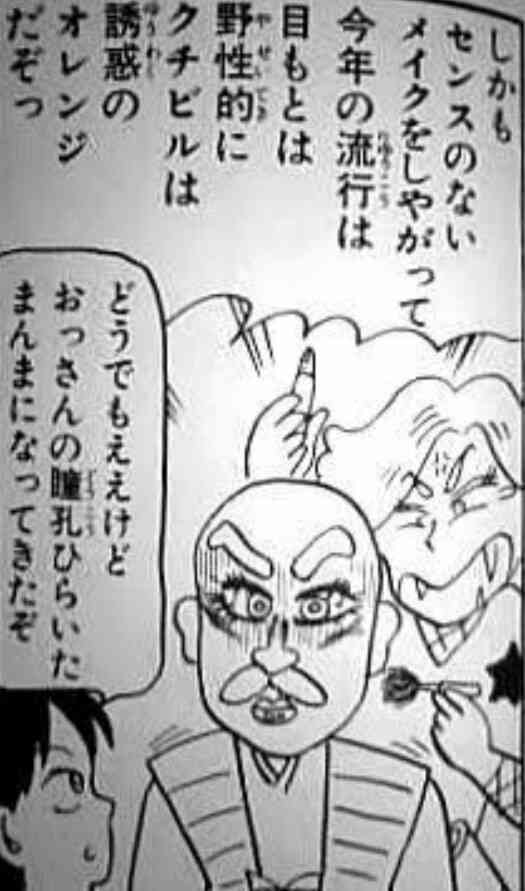 しかも
センスのない
メイクをしやがって
今年の流行は
目もとは
野性的に
クチビルは
誘惑の
オレンジ
だぞっ
どうでもええけど
おっさんの瞳孔ひらいた
まんまになってきたぞ